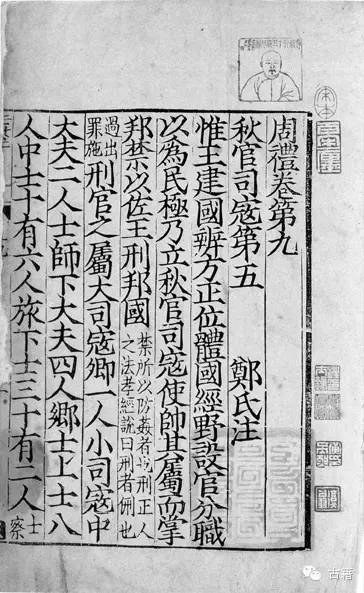 周禮卷第九
秋官司寇第五 鄭氏注
惟王建國辨方正位體國經野設官分職
以為民極乃立秋官司寇使帥其屬而掌
邦禁以佐王刑邦國 禁所以防姦者也刑正人
之法孝經說曰刑者侀也
過出
罪施 刑官之屬大司寇卿一人小司寇中
大夫二人士師下大夫四人鄉士上士八
人中士十有六人旅下士三十有二人 士
察
古籍